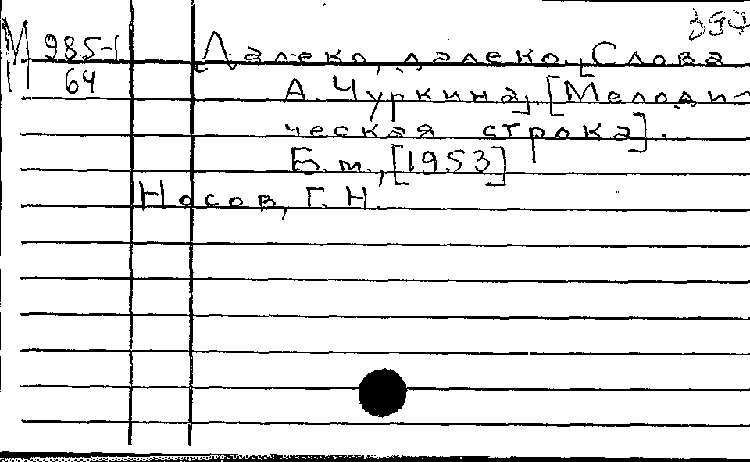 М 985-1
64
Далеко, далеко. Слова
А. Чуркина, [Мелоди-
ческая строка].
Б.м., [1953]
Носов, Г. Н.